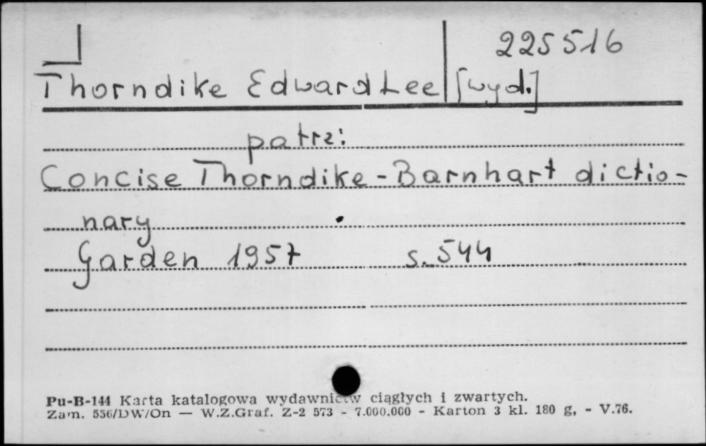 225516
Thorndike Edward Lee [wyd.]
patrz:
Concise Thorndike-Barnhart dictio-
nary
Garden 1957 s. 544
Pu-B-144 Karta katalogowa wydawnictw ciągłych i zwartych.
Zam. 556/DW/On — W.Z.Graf. Z-2 573 - 7.000.000 - Karton 3 kl. 180 g, - V.76.